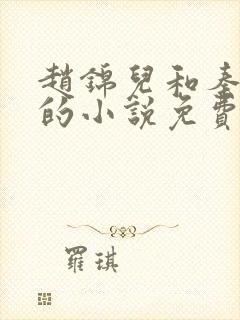 趙錦兒和秦
的小說免費
羅琪